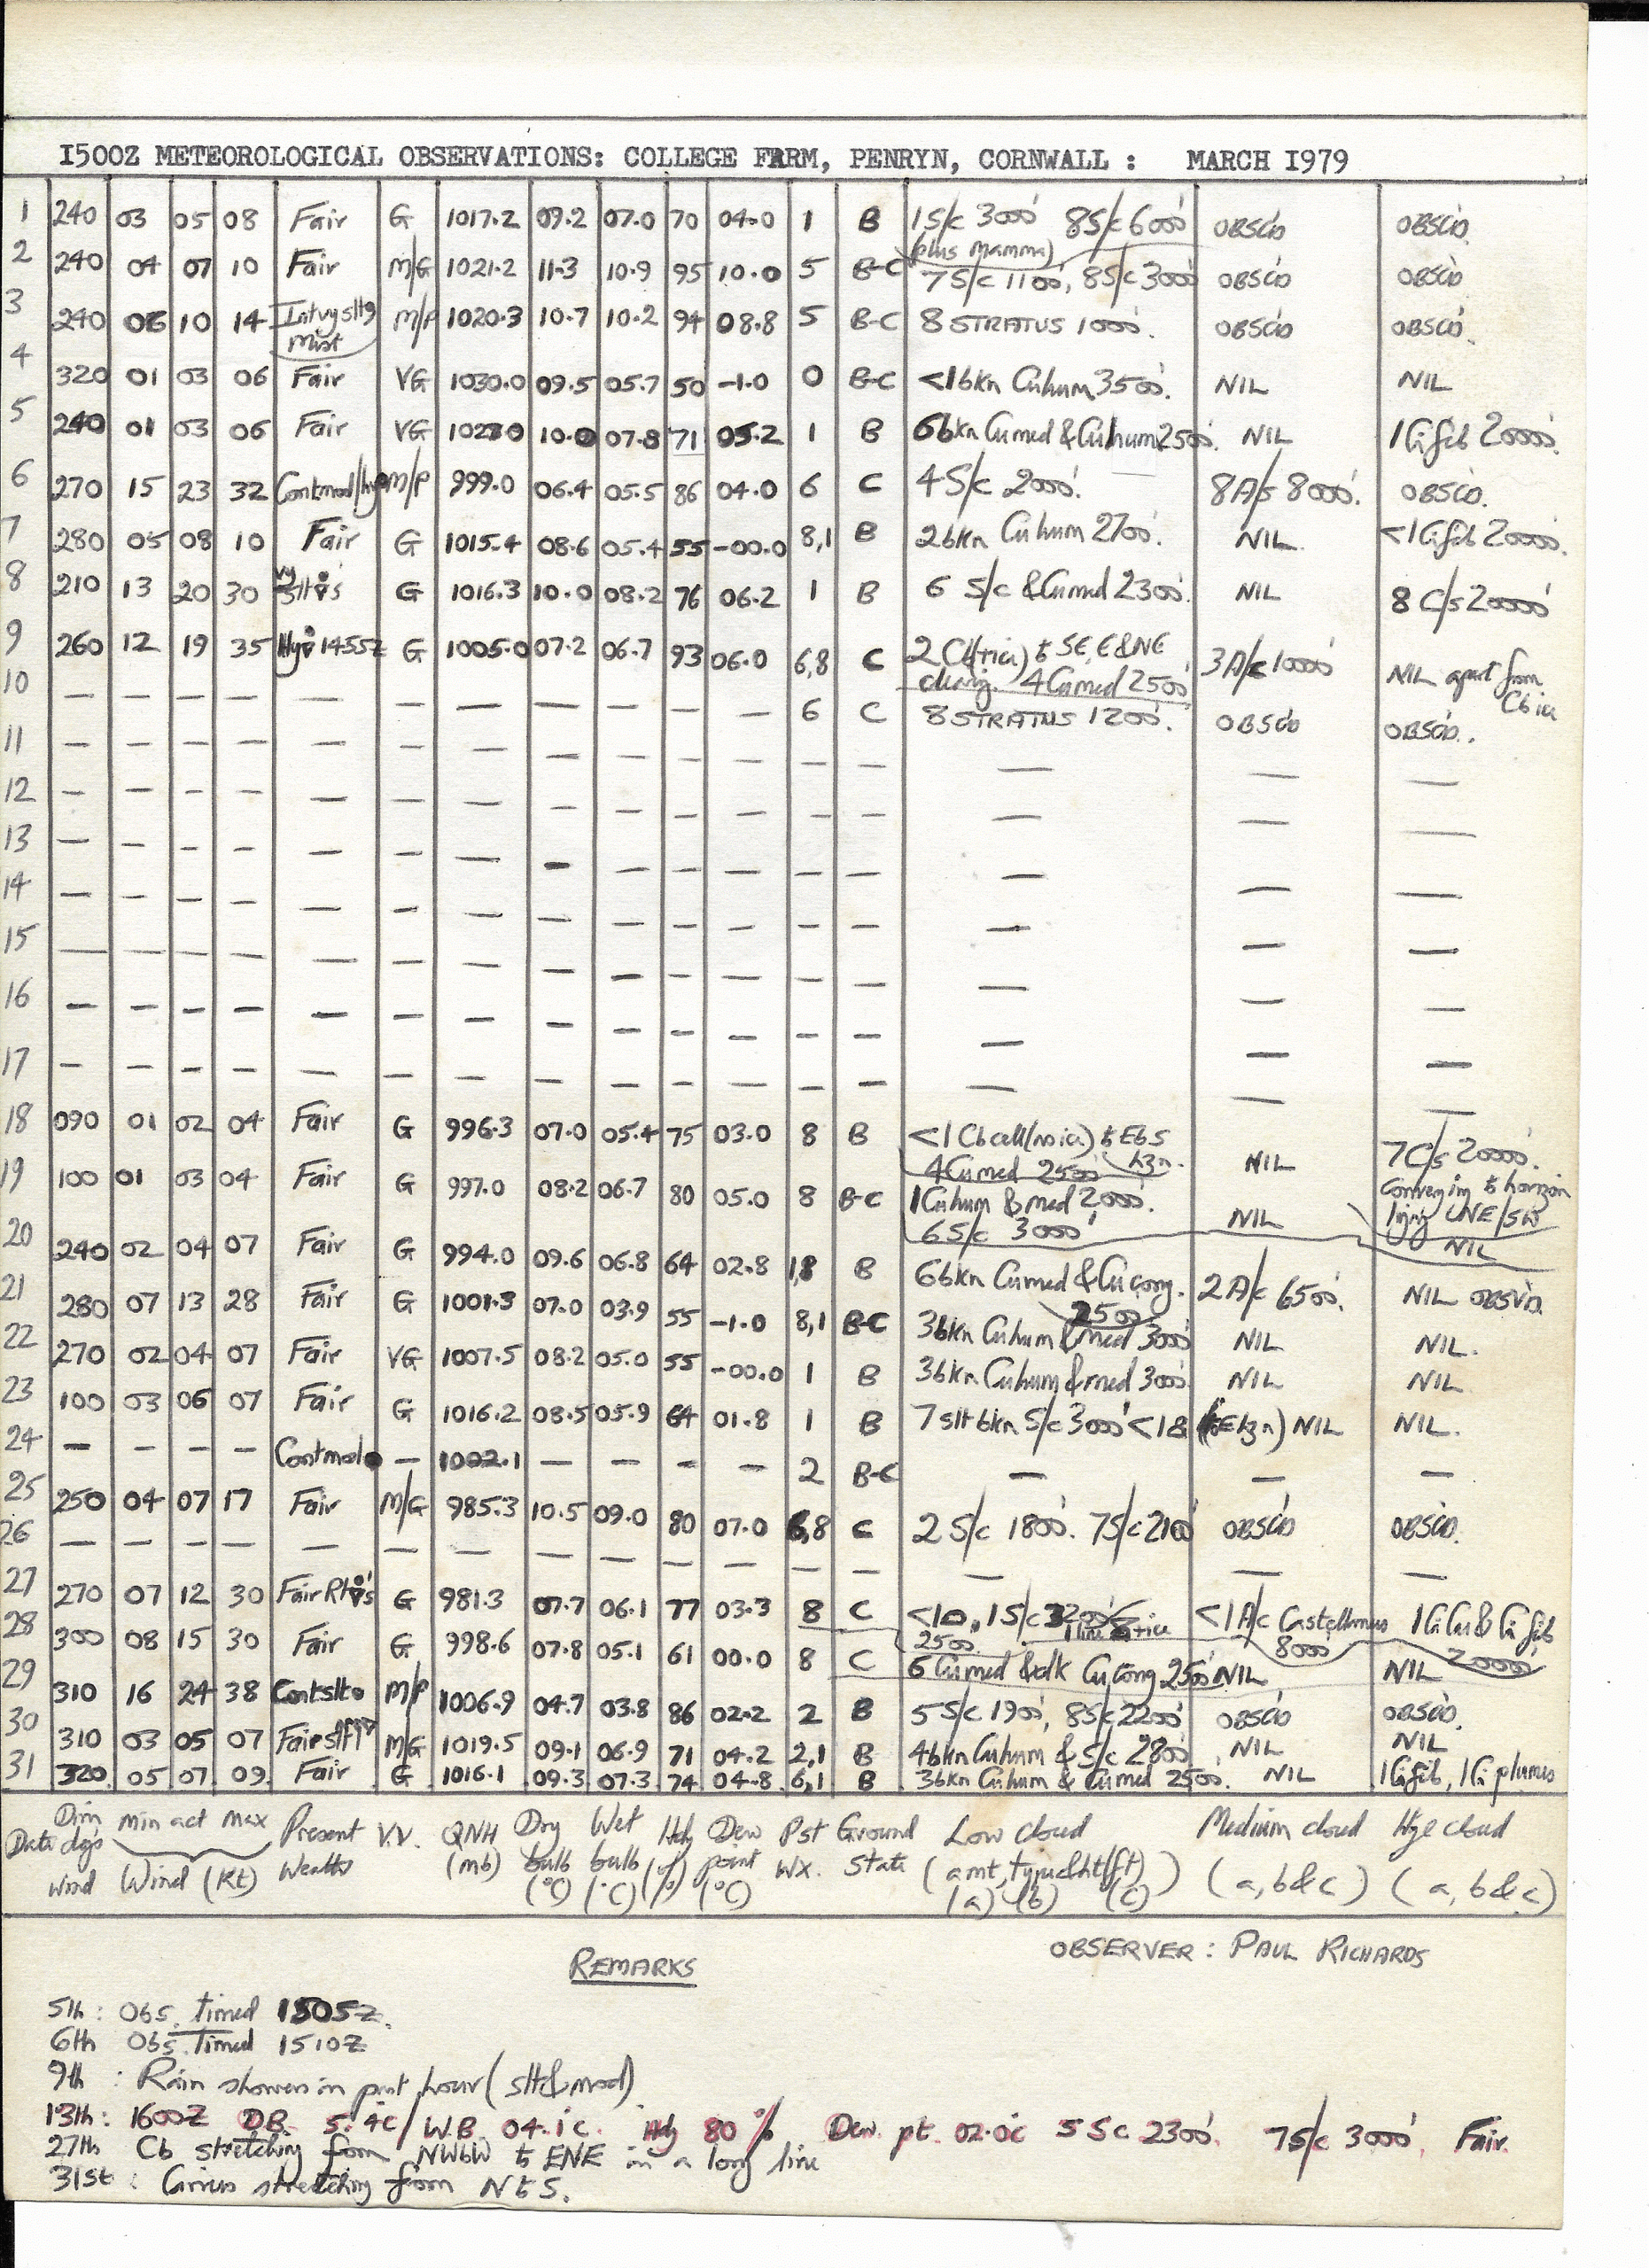 I500Z METEOROLOGICAL OBSERVATIONS: COLLEGE FARM, PENRYN, CORNWALL : MARCH I979
1 240 03 05 08 Fair G 1017.2 09.2 07.0 70 04.0 1 B 1S/c 3000' 8S/c 6000' OBSC'D OBSC'D.
(plus mamma)
2 240 04 07 10 Fair M/G 1021.2 11.3 10.9 95 10.0 5 B-C 7S/c 1100', 8S/c 3000' OBSC'D OBSC'D
3 240 06 10 14 Int vy slt Mist M/P 1020.3 10.7 10.2 94 08.8 5 B-C 8 STRATUS 1000'. OBSC'D OBSC'D.
4 320 01 03 06 Fair VG 1030.0 09.5 05.7 50 -1.0 0 B-C <1 bkn Cu hum 3500'. NIL NIL
5 240 01 03 06 Fair VG 1023.0 10.0 07.8 71 05.2 1 B 6 bkn Cu med & Cu hum 2500'. NIL 1 Ci fib 20000'.
6 270 15 23 32 Cont mod/hy M/P 999.0 06.4 05.5 86 04.0 6 C 4 S/c 2000'. 8 A/s 8000'. OBSC'D.
7 280 05 08 10 Fair G 1015.4 08.6 05.4 55 -00.0 8,1 B 2 bkn Cu hum 2700'. NIL. <1 Ci fib 20000'.
8 210 13 20 30 vy slt 's G 1016.3 10.0 08.2 76 06.2 1 B 6 S/c & Cu med 2300'. NIL 8 C/s 20000'
9 260 12 19 35 Hy 1455Z G 1005.0 07.2 06.7 93 06.0 6,8 C 2 Cb to SE, E & NE 3 A/c 10000' NIL apart from Cb ice
4 Cu med 2500'
10 — — — — — — — — — — — 6 C 8 STRATUS 1200'. OBSC'D OBSC'D.
11 — — — — — — — — — — — — — — — —
12 — — — — — — — — — — — — — — — —
13 — — — — — — — — — — — — — — — —
14 — — — — — — — — — — — — — — — —
15 — — — — — — — — — — — — — — — —
16 — — — — — — — — — — — — — — — —
17 — — — — — — — — — — — — — — — —
18 090 01 02 04 Fair G 996.3 07.0 05.4 75 03.0 8 B <1 Cb cell (no ice) to EbS hzn. NIL 7 C/s 20000'.
4 Cu med 2500' converging to horizon
19 100 01 03 04 Fair G 997.0 08.2 06.7 80 05.0 8 B-C 1 Cu hum & med 2000'. NIL NIL
6 S/c 3000'
20 240 02 04 07 Fair G 994.0 09.6 06.8 64 02.8 1,8 B 6 bkn Cu med & Cu cong. 2500' 2 A/c 6500'. NIL OBSV'D.
21 280 07 13 28 Fair G 1001.3 07.0 03.9 55 -1.0 8,1 B-C 3 bkn Cu hum & med 3000' NIL NIL.
22 270 02 04 07 Fair VG 1007.5 08.2 05.0 55 -00.0 1 B 3 bkn Cu hum & med 3000' NIL NIL.
23 100 03 06 07 Fair G 1016.2 08.5 05.9 64 01.8 1 B 7 slt bkn S/c 3000' <1 (to E hzn) NIL NIL.
24 — — — — Cont mod — 1002.1 — — — — 2 B-C — — —
25 250 04 07 17 Fair M/G 985.3 10.5 09.0 80 07.0 6,8 C 2 S/c 1800'. 7 S/c 2100' OBSC'D OBSC'D.
26 — — — — — — — — — — — — — — — —
27 270 07 12 30 Fair 's G 981.3 07.7 06.1 77 03.3 8 C <1 2500', 1 S/c 3200' <1 A/c Castellanus 8000' 1 Ci Cu & Ci fib 20000'
28 300 08 15 30 Fair G 998.6 07.8 05.1 61 00.0 8 C 6 Cu med & dk Cu cong 2500' NIL NIL
29 310 16 24 38 Cont slt M/P 1006.9 04.7 03.8 86 02.2 2 B 5 S/c 1900', 8 S/c 2200' OBSC'D OBSC'D.
30 310 03 05 07 Fair M/G 1019.5 09.1 06.9 71 04.2 2,1 B 4 bkn Cu hum & S/c 2800' NIL NIL
31 320 05 07 09 Fair G 1016.1 09.3 07.3 74 04.8 6,1 B 3 bkn Cu hum & Cu med 2500'. NIL 1 Ci fib, 1 Ci plumus
Date Dirn degs wind min act max Wind (Kt) Present Weather V.V. QNH (mb) Dry bulb (°C) Wet bulb (°C) Hdy (%) Dew point (°C) Pst Wx. Ground State Low cloud (amt, type & ht (ft)) (a) (b) (c) Medium cloud (a, b & c) Hye cloud (a, b & c)
OBSERVER : PAUL RICHARDS
REMARKS
5th : Obs. timed 1505Z.
6th Obs. Timed 1510Z
9th : Rain showers in past hour (slt & mod)
13th : 1600Z D.B. 5.4c / W.B. 04.1c. Hdy 80% Dew. pt. 02.0c 5 Sc 2300'. 7S/c 3000'. Fair.
27th Cb stretching from NWbW to ENE in a long line
31st : Cirrus stretching from N to S.